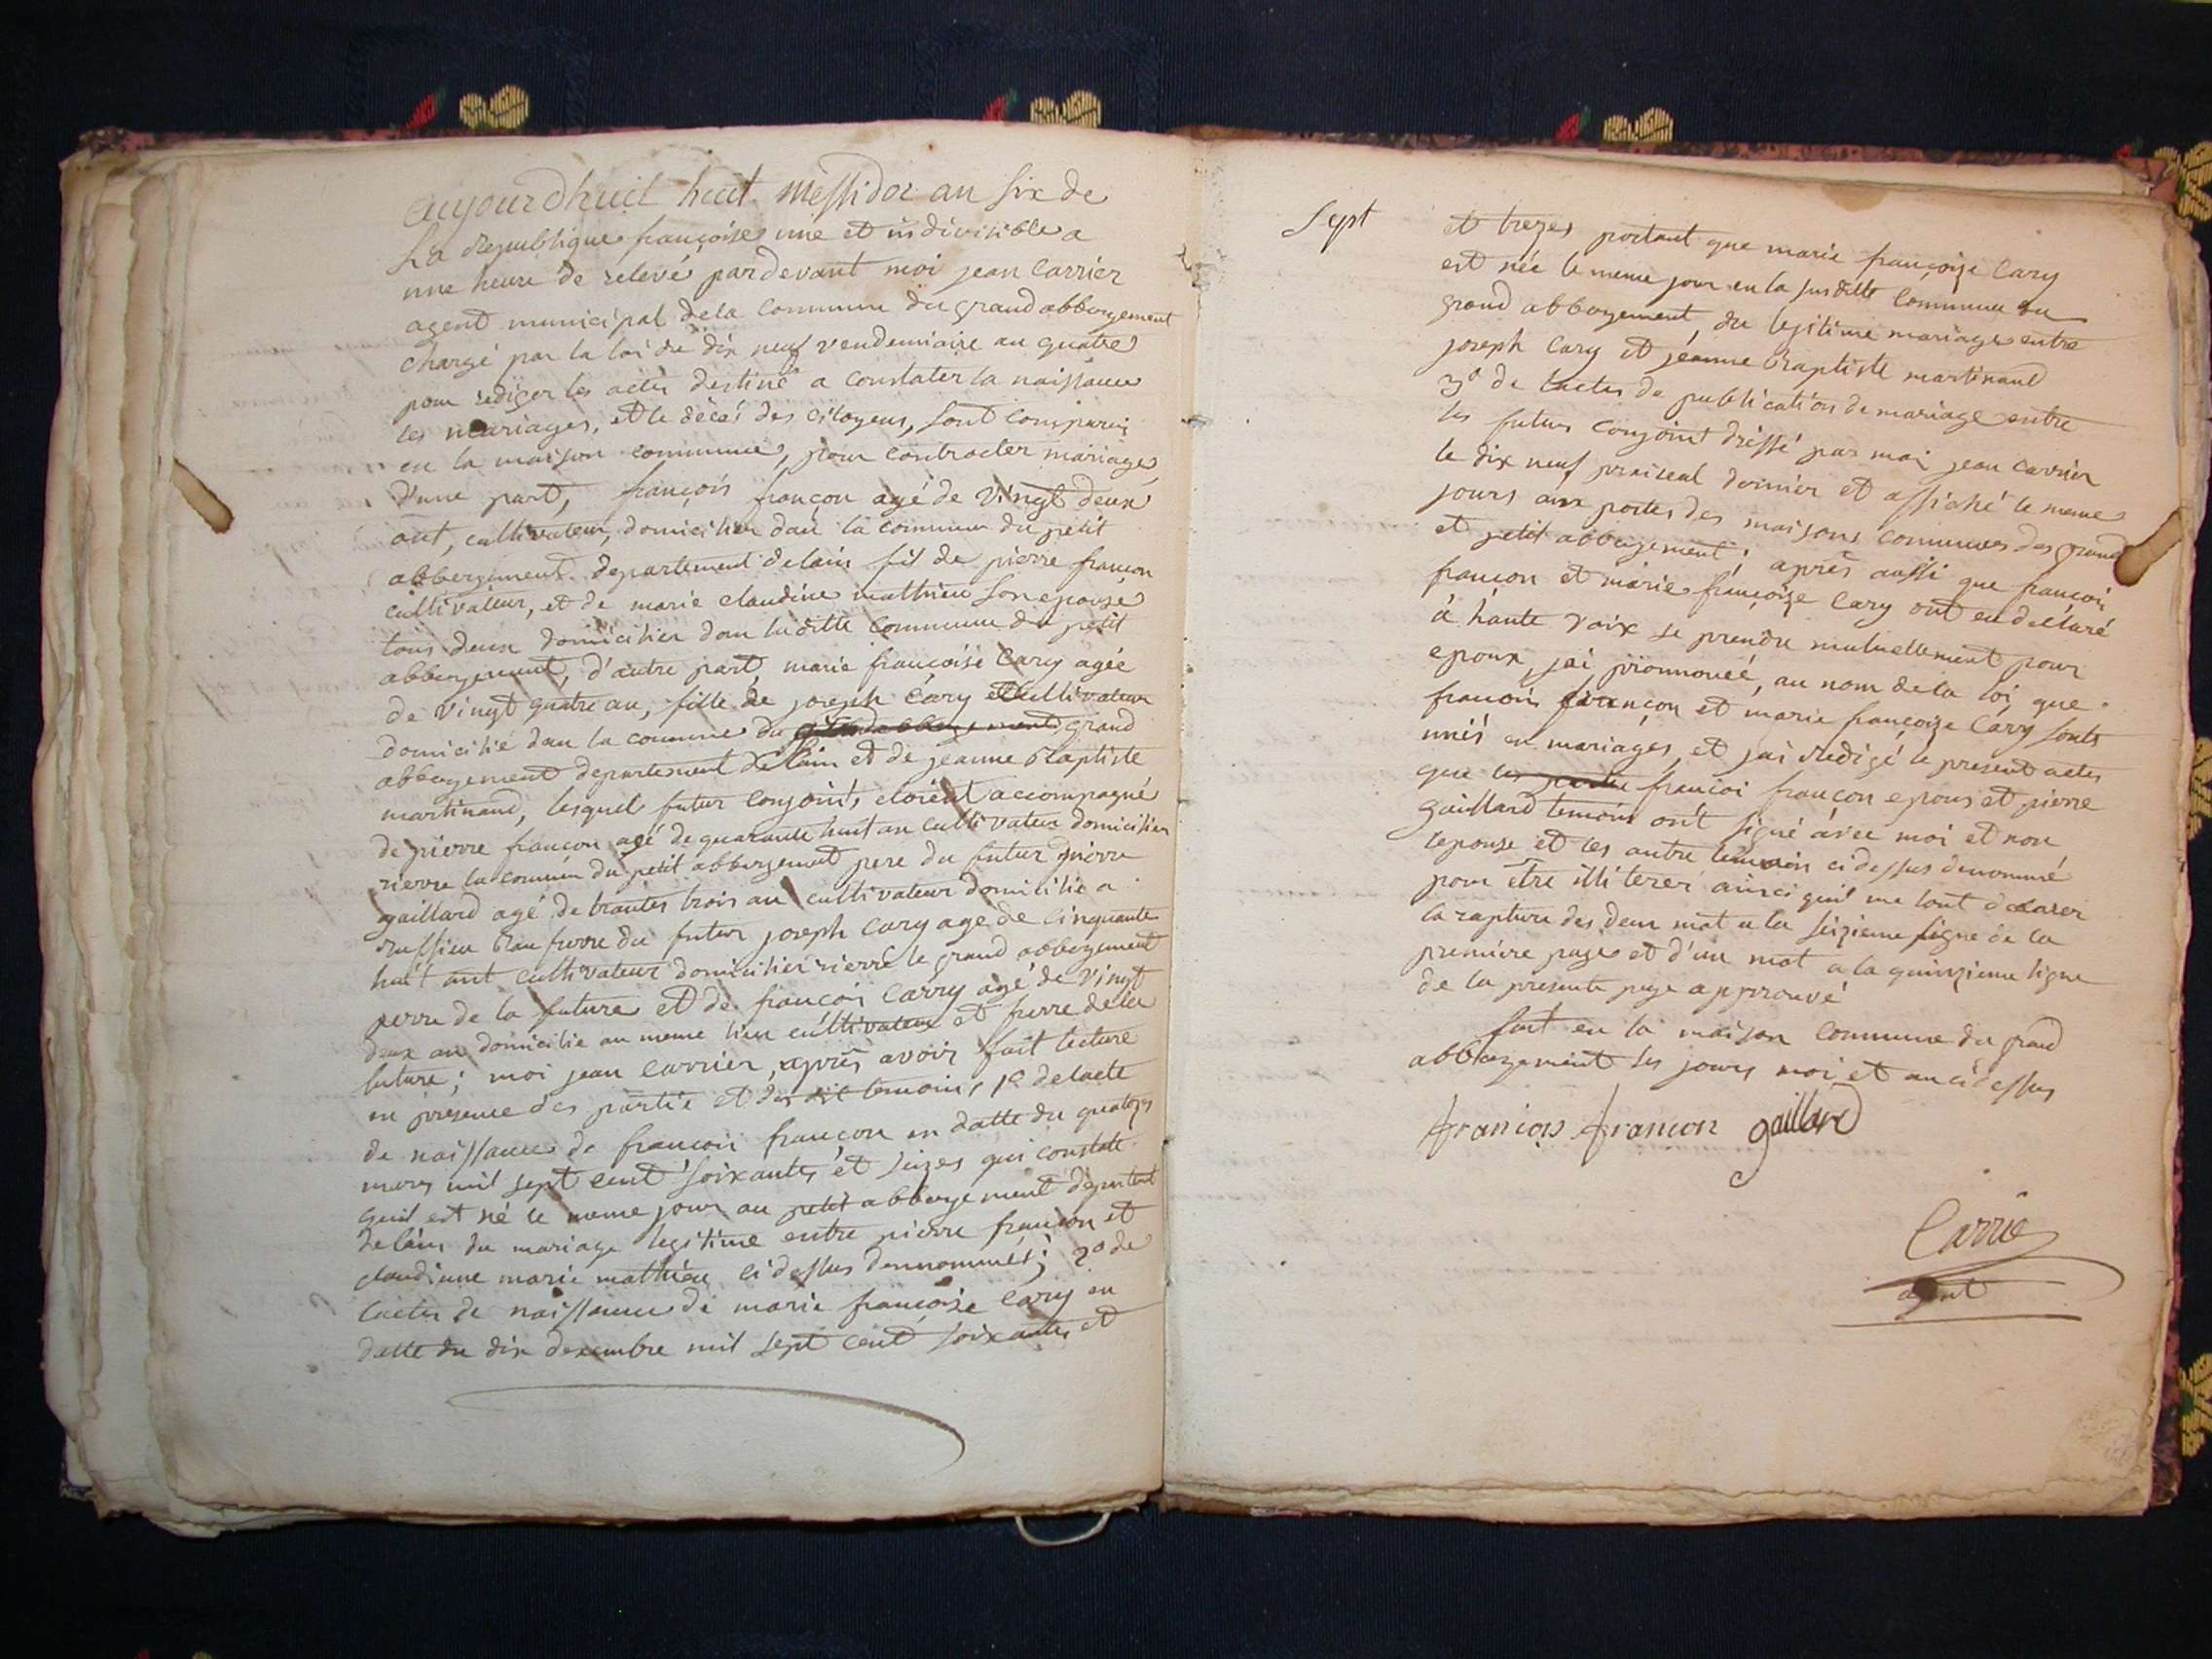 aujourdhuil huit messidor an six de
La Republique françoise une et indivisible a
une heure de relevé pardevant moi jean Carrier
agent municipal dela Commune du grand abbergement
chargé par la loi du dix neuf vendemiaire an quatre
pour rediger les actes destiné a constater la naissance
les mariages, et le décés des citoyens, sont comparus
en la maison commune, pour contracter mariage
d'une part, françois françon agé de vingt deux
ant, cultivateur, domicilier dans la commune du petit
abbergement departement delain fils de pierre françon
cultivateur, et de marie claudine mathieu son epouse
tous deux domicilier dans laditte commune du petit
abbergement, d'autre part, marie françoise Cary agée
de vingt quatre an, fille de joseph Cary cultivateur
domicilié dan la commune du grand abbergement grand
abbergement departement de lain et de jeanne Baptiste
martinand, lesquel futur conjoint, etoient accompagné
de pierre françon agé de quarante huit an cultivateur domicilier
rierre la commun du petit abbergement pere du futur pierre
gaillard agé de trantes trois an cultivateur domicilié a
Ruffieu Beau frerre du futur joseph Cary age de Cinquante
huit ant cultivateur domicilier rierre le grand abbergement
perre de la future et de françois Carry agé de vingt
deux an domicilié au meme lieu cultivateur et frerre de la
future; moi jean Carrier, après avoir fait lecture
en presence des partie et des dit temoins, 1º de lacte
de naissance de françois françon en datte du quatorze
mars mil sept cent soixantes et seizes qui constate
quil est né le meme jour au petit abbergement departent
delain du mariage legitime entre pierre françon et
claudinne marie mathieu ci dessus dennommés; 2º de
lactes de naissance de marie françoise Cary en
datte du dix decembre mil sept cent soixantes et
Sept
et trezes portant que marie françoise Cary
est née le meme jour en la susditte Commune du
grand abbergement, du legitime mariage entre
joseph Cary et jéanne Baptiste martinand
3º de lactes de publication de mariage entre
les futurs conjoint dréssé par moi jean Carrier
le dix neuf praireal dernier et affiché le meme
jours aux portes des maisons communes des grand
et petit abbergement; après aussi que françois
françon et marie françoize Cary ont eu déclaré
à haute voix se prendre mutuellement pour
epoux, jai pronnoncé, au nom de la loi, que
françois françon et marie françoize Cary sonts
uniés en mariages, et jai redigé le present actes
que les partie françoi françon epous et pierre
gaillard temoins ont signé avec moi et non
lepouse et les autre temoin ci dessus denommé
pour être illiterer ainsi quil me lont déclarer
la rapture des deux mot a la seizieme ligne de la
premiére page et d'un mot a la quinzieme ligne
de la presente page approuvé
fait en la maison commune du grand
abbergement les jours moi et an ci dessus
françois françon gaillard
Carrie
agent